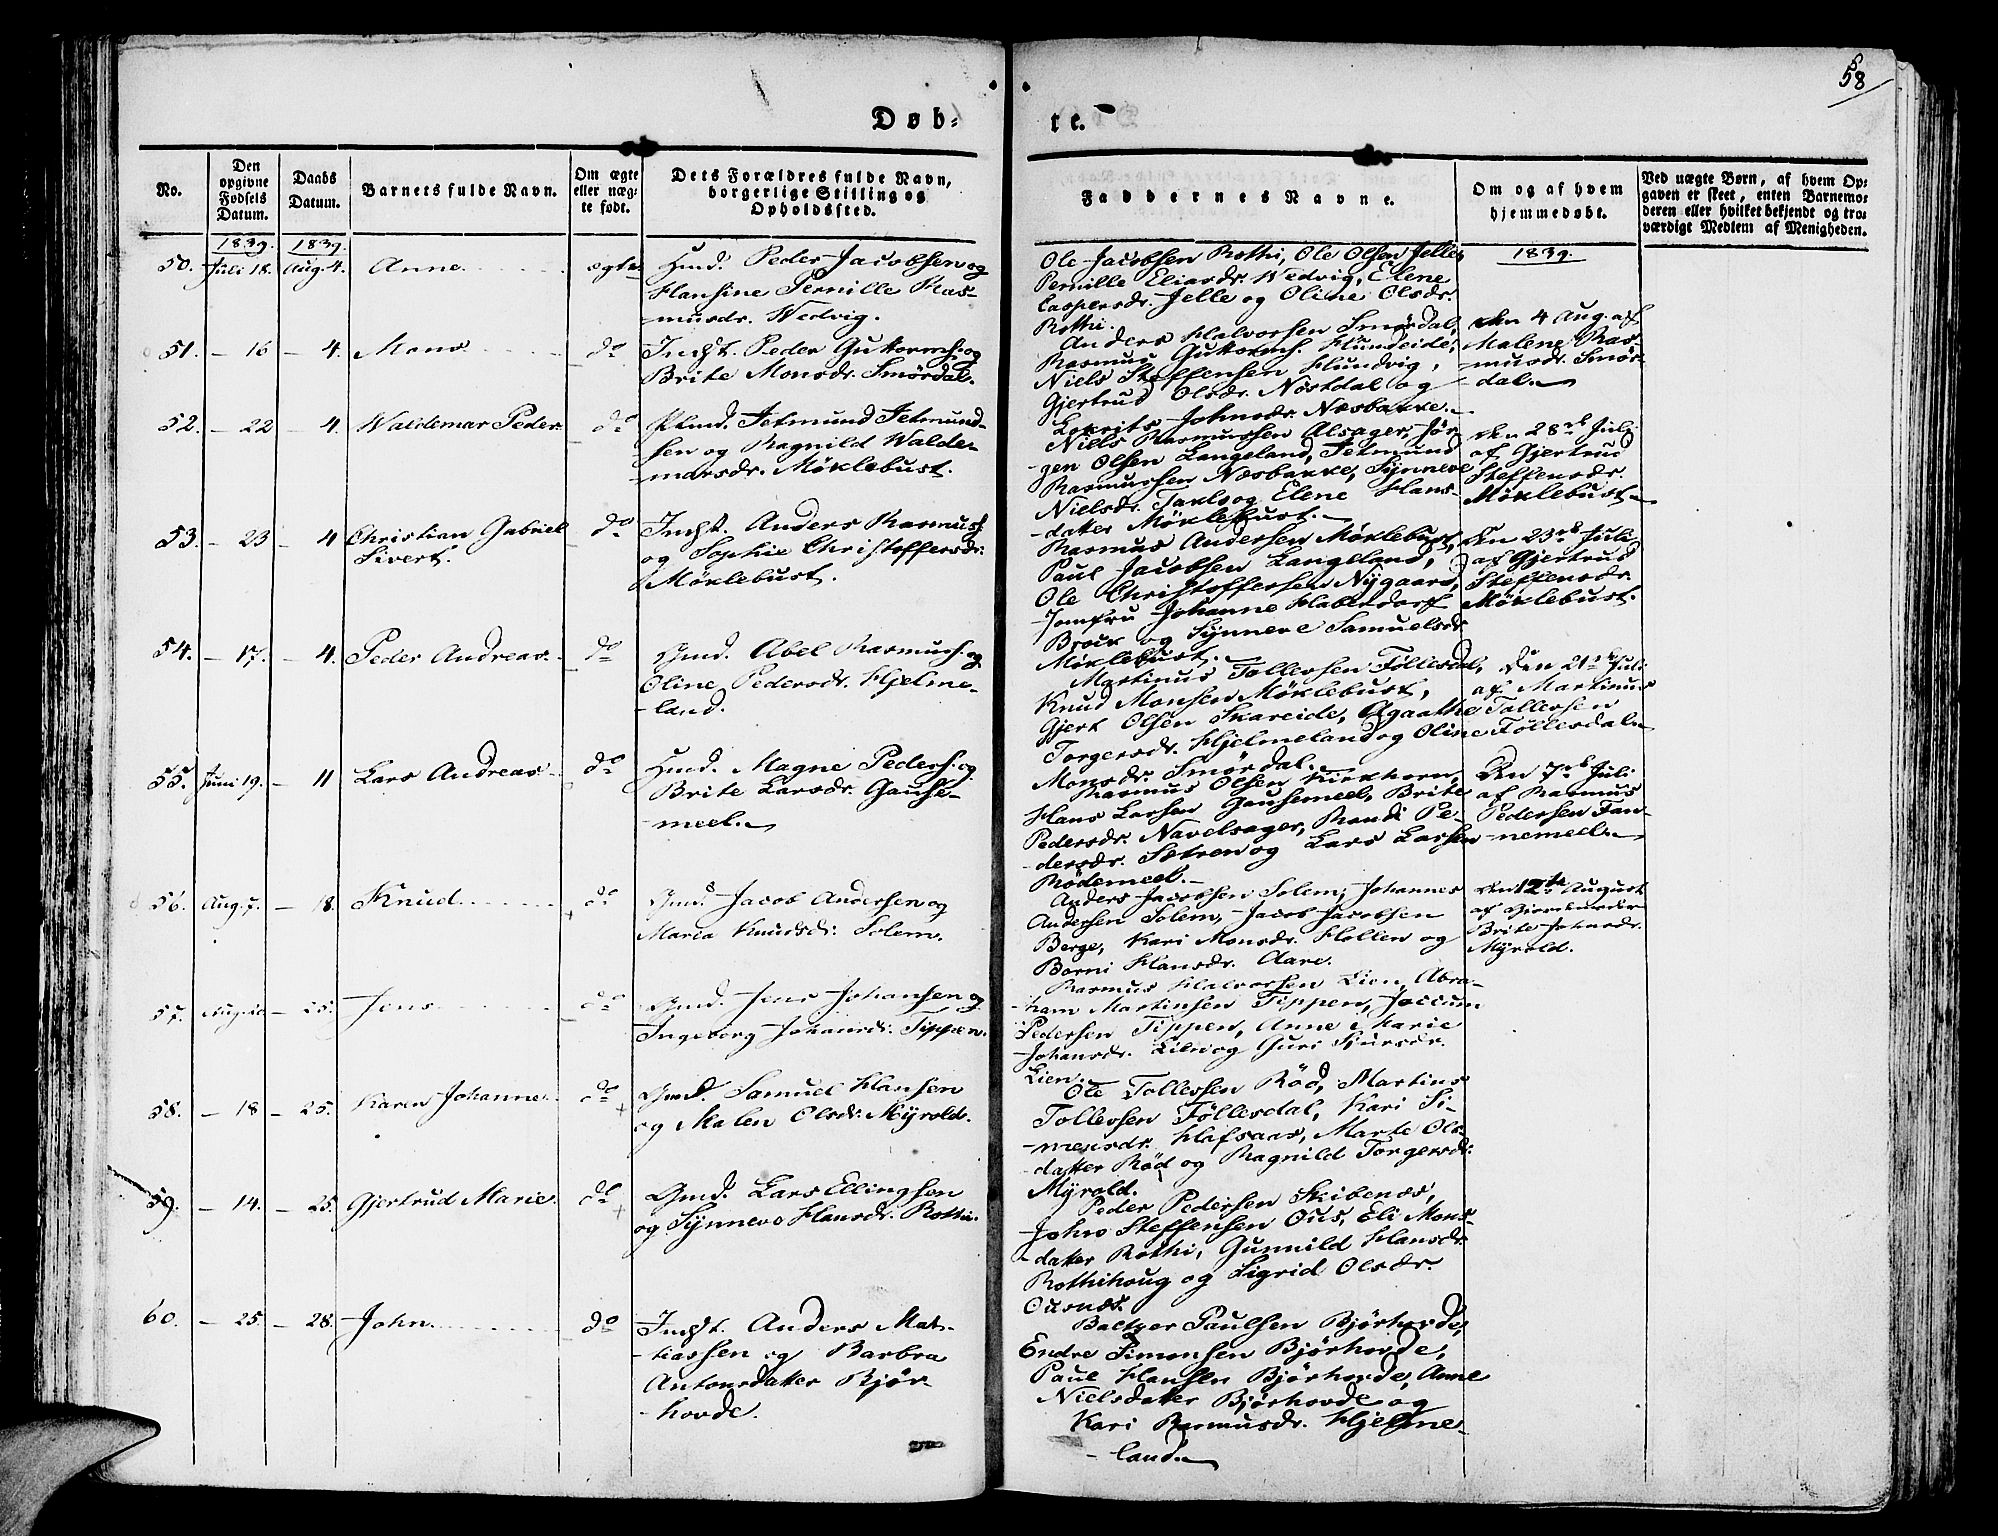 58
Døb-
te.
No.
Den opgivne Fødsels Datum.
Daabs Datum.
Barnets fulde Navn.
Om ægte eller næg-te født.
Dets Forældres fulde Navn, borgerlige Stilling og Opholdssted.
Faddernes Navne.
Om og af hvem hjemmedøbt.
Ved uægte Børn, af hvem Op-gaven er skeet, enten Barnemo-deren eller hvilket bekjendt og tro-værdigt Medlem af Menigheden.
1839. 1839. 1839.
50. Juli 18. Aug. 4. Anne ægte Hmd. Peder Jacobsen og
Hansine Pernille Ras-
musdr. Wedvig.
Ole Jacobsen Rothi, Ole Olsen Jelle,
Pernille Eliasdr. Wedvig, Elene
Caspersdr. Jelle og Oline Olsdr.
Rothi.
51. – 16 – 4. Mons do Indst. Peder Guttormsh. og
Brite Monsdr. Smørdal.
Anders Halvorsen Smørdal,
Rasmus Guttormh. Hundeide,
Niels Steffensen Hundvig,
Gjertrud Olsdr. Nostdal og
Lokrits Johnsdr. Næsbakke.
den 4 Aug. af
Malene Ras-
musdr. Smør-
dal.
52. – 22 – 4. Waldemar Peder do Pmd. Jetmund Jetmund-
sen og Ragnild Walde-
marsdr. Møklebust.
Niels Rasmussen Alsager, Jør-
gen Olsen Langeland, Jetmund
Rasmussen Næsbakke, Synneve
Nielsdr. Taklo og Elene Hans-
datter Møklebust.
den 28de Juli
af Gjertrud
Steffensdr.
Møklebust.
53. – 23 – 4 Christian Gabriel
Sivert.
do Indst. Anders Rasmush.
og Sophie Christoffersdr.
Møklebust.
Rasmus Andersen Møklebust,
Paul Jacobsen Langeland,
Ole Christoffersen Nygaard,
Jomfru Johanne Haberdorf
Brouk og Synneve Samuelsdr.
Møklebust.
Den 23de Juli
af Gjertrud
Steffensdr.
Møklebust.
54. – 17. – 4. Peder Andreas do Gmd. Abel Rasmush. og
Oline Pedersdr. Hjelme-
land.
Martinus Tollersen Føllesdal,
Knud Monsen Møklebust,
Gjert Olsen Skareide, Agaathe
Torgersdr. Hjelmeland og Oline
Monsdr. Smørdal.
Den 21de Juli
af Martinus
Tollersen
Føllesdal
55. Juni 19. – 11 Lars Andreas do Hmd. Magne Pedersh. og
Brite Larsdr. Gause-
meel.
Rasmus Olsen Kirkhorn,
Hans Larsen Gausemeel, Brite
Pedersdr. Navelsager, Randi Pe-
dersdr. Sætren og Lars Larsen
Rødemeel.
Den 7de Juli
af Rasmus
Pedersen Fan-
nemeel.
56. Aug. 7. – 18. Knud do Gmd. Jacob Andersen og
Maria Knudsdr. Solem.
Anders Jacobsen Solem, Johannes
Andersen Solem, Jacob Jacobsen
Berge, Kari Monsdr. Hollen og
Borni Hansdr. Aare.
Den 12te August
af Gjordemoder
Brite Johnsdr.
Myrold.
57. Aug. – 25. Jens do Gmd. Jens Johansen og
Ingeborg Johansdr. Tippen.
Rasmus Halvorsen Lien, Abra-
ham Martinsen Tippen, Joccum
Pedersen Tippen, Anne Marie
Johansdr. Lien og Guri Sjursdr.
Lien.
58. – 18 – 25. Karen Johanne do Gmd. Samuel Hansen
og Malen Olsdr. Myrold.
Ole Tollessen Rød, Martins
Tollessen Føllesdal, Kari Si-
mensdr. Hafsaas, Marte Ols-
datter Rød og Ragnild Torgersdr.
Myrold.
59. – 14. – 25. Gjertrud Marie do Gmd. Lars Ellingsen
og Synneve Hansdr. Rothi.
Peder Pedersen Skibenæs,
Johns Steffensen Ous, Eli Mons-
datter Rothi, Gunnild Hansdr.
Rothihoug og Sigrid Olsdr.
Ousnæs.
60. – 25. – 28. John do Indst. Anders Mat-
hiassen og Barbra
Antonsdatter Bjør-
hovde.
Baltzer Paulsen Bjørhovde,
Endre Simonsen Bjørhovde,
Paul Hansen Bjørhovde, Anne
Nielsdatter Bjørhovde og
Kari Rasmusdr. Hjelme-
land.